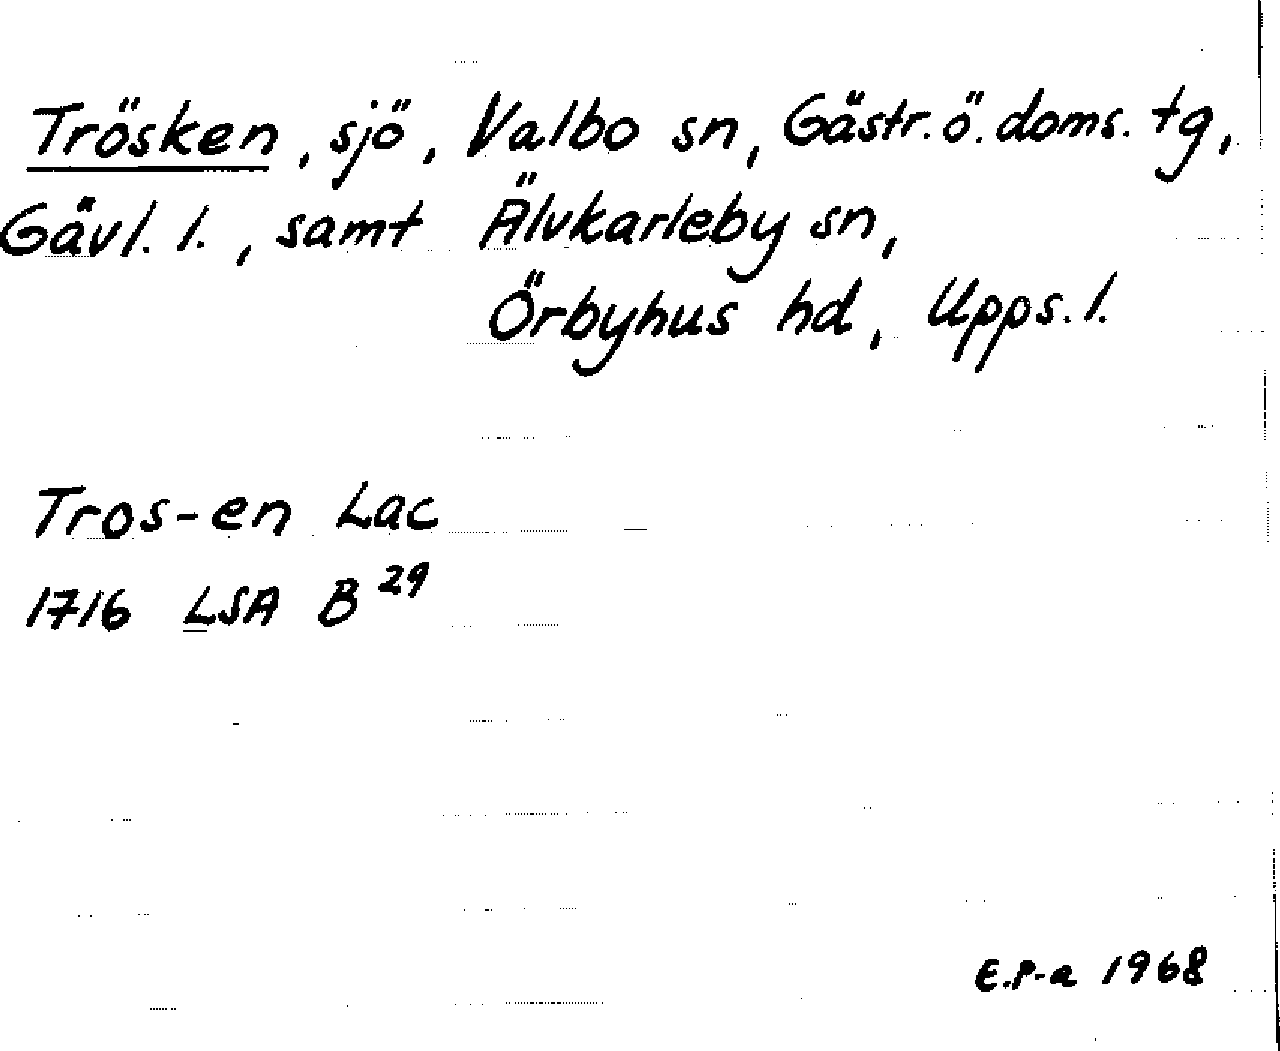 Trösken, sjö, Valbo sn, Gästr. ö. doms. tg,
Gävl. l., samt Älvkarleby sn,
Örbyhus hd, Upps. l.
Tros-en Lac
1716 LSA B 29
E.P-a 1968